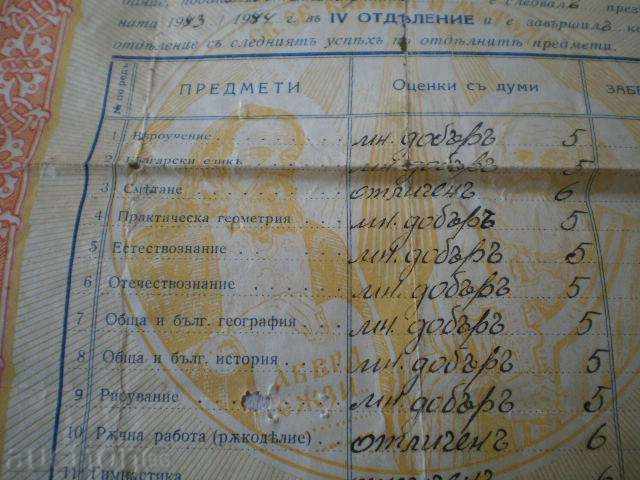 презъ
ната 1943 / 1944 г. въ IV ОТДѢЛЕНИЕ и е завършилъ
отдѣление съ следниятъ успѣхъ по отдѣлнитѣ предмети.
№ по редъ ПРЕДМЕТИ Оценки съ думи ЗАБЕ
1 Вѣроучение мн. добъръ 5
2 Български езикъ мн. добъръ 5
3 Смѣтане отличенъ 6
4 Практическа геометрия мн. добъръ 5
5 Естествознание мн. добъръ 5
6 Отечествознание мн. добъръ 5
7 Обща и бълг. география мн. добъръ 5
8 Обща и бълг. история мн. добъръ 5
9 Рисуване мн. добъръ 5
10 Рѫчна работа (рѫкодѣлие) отличенъ 6
11 Гимнастика отличенъ 6